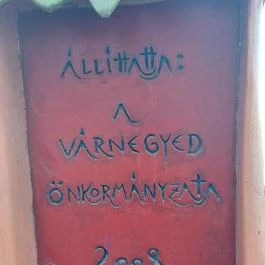 ÁLLÍTTATTA:
A
VÁRNEGYED
ÖNKORMÁNYZATA
2008